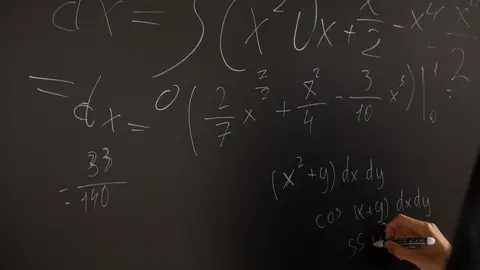 dx = ∫ (x² √x + x/2 - x⁴ - x/2
= dx = 0 (2/7 x^(7/2) + x²/4 - 3/10 x⁵)|₀¹ =
= 33/140
(x² + y) dx dy
cos (x+y) dx dy
SS